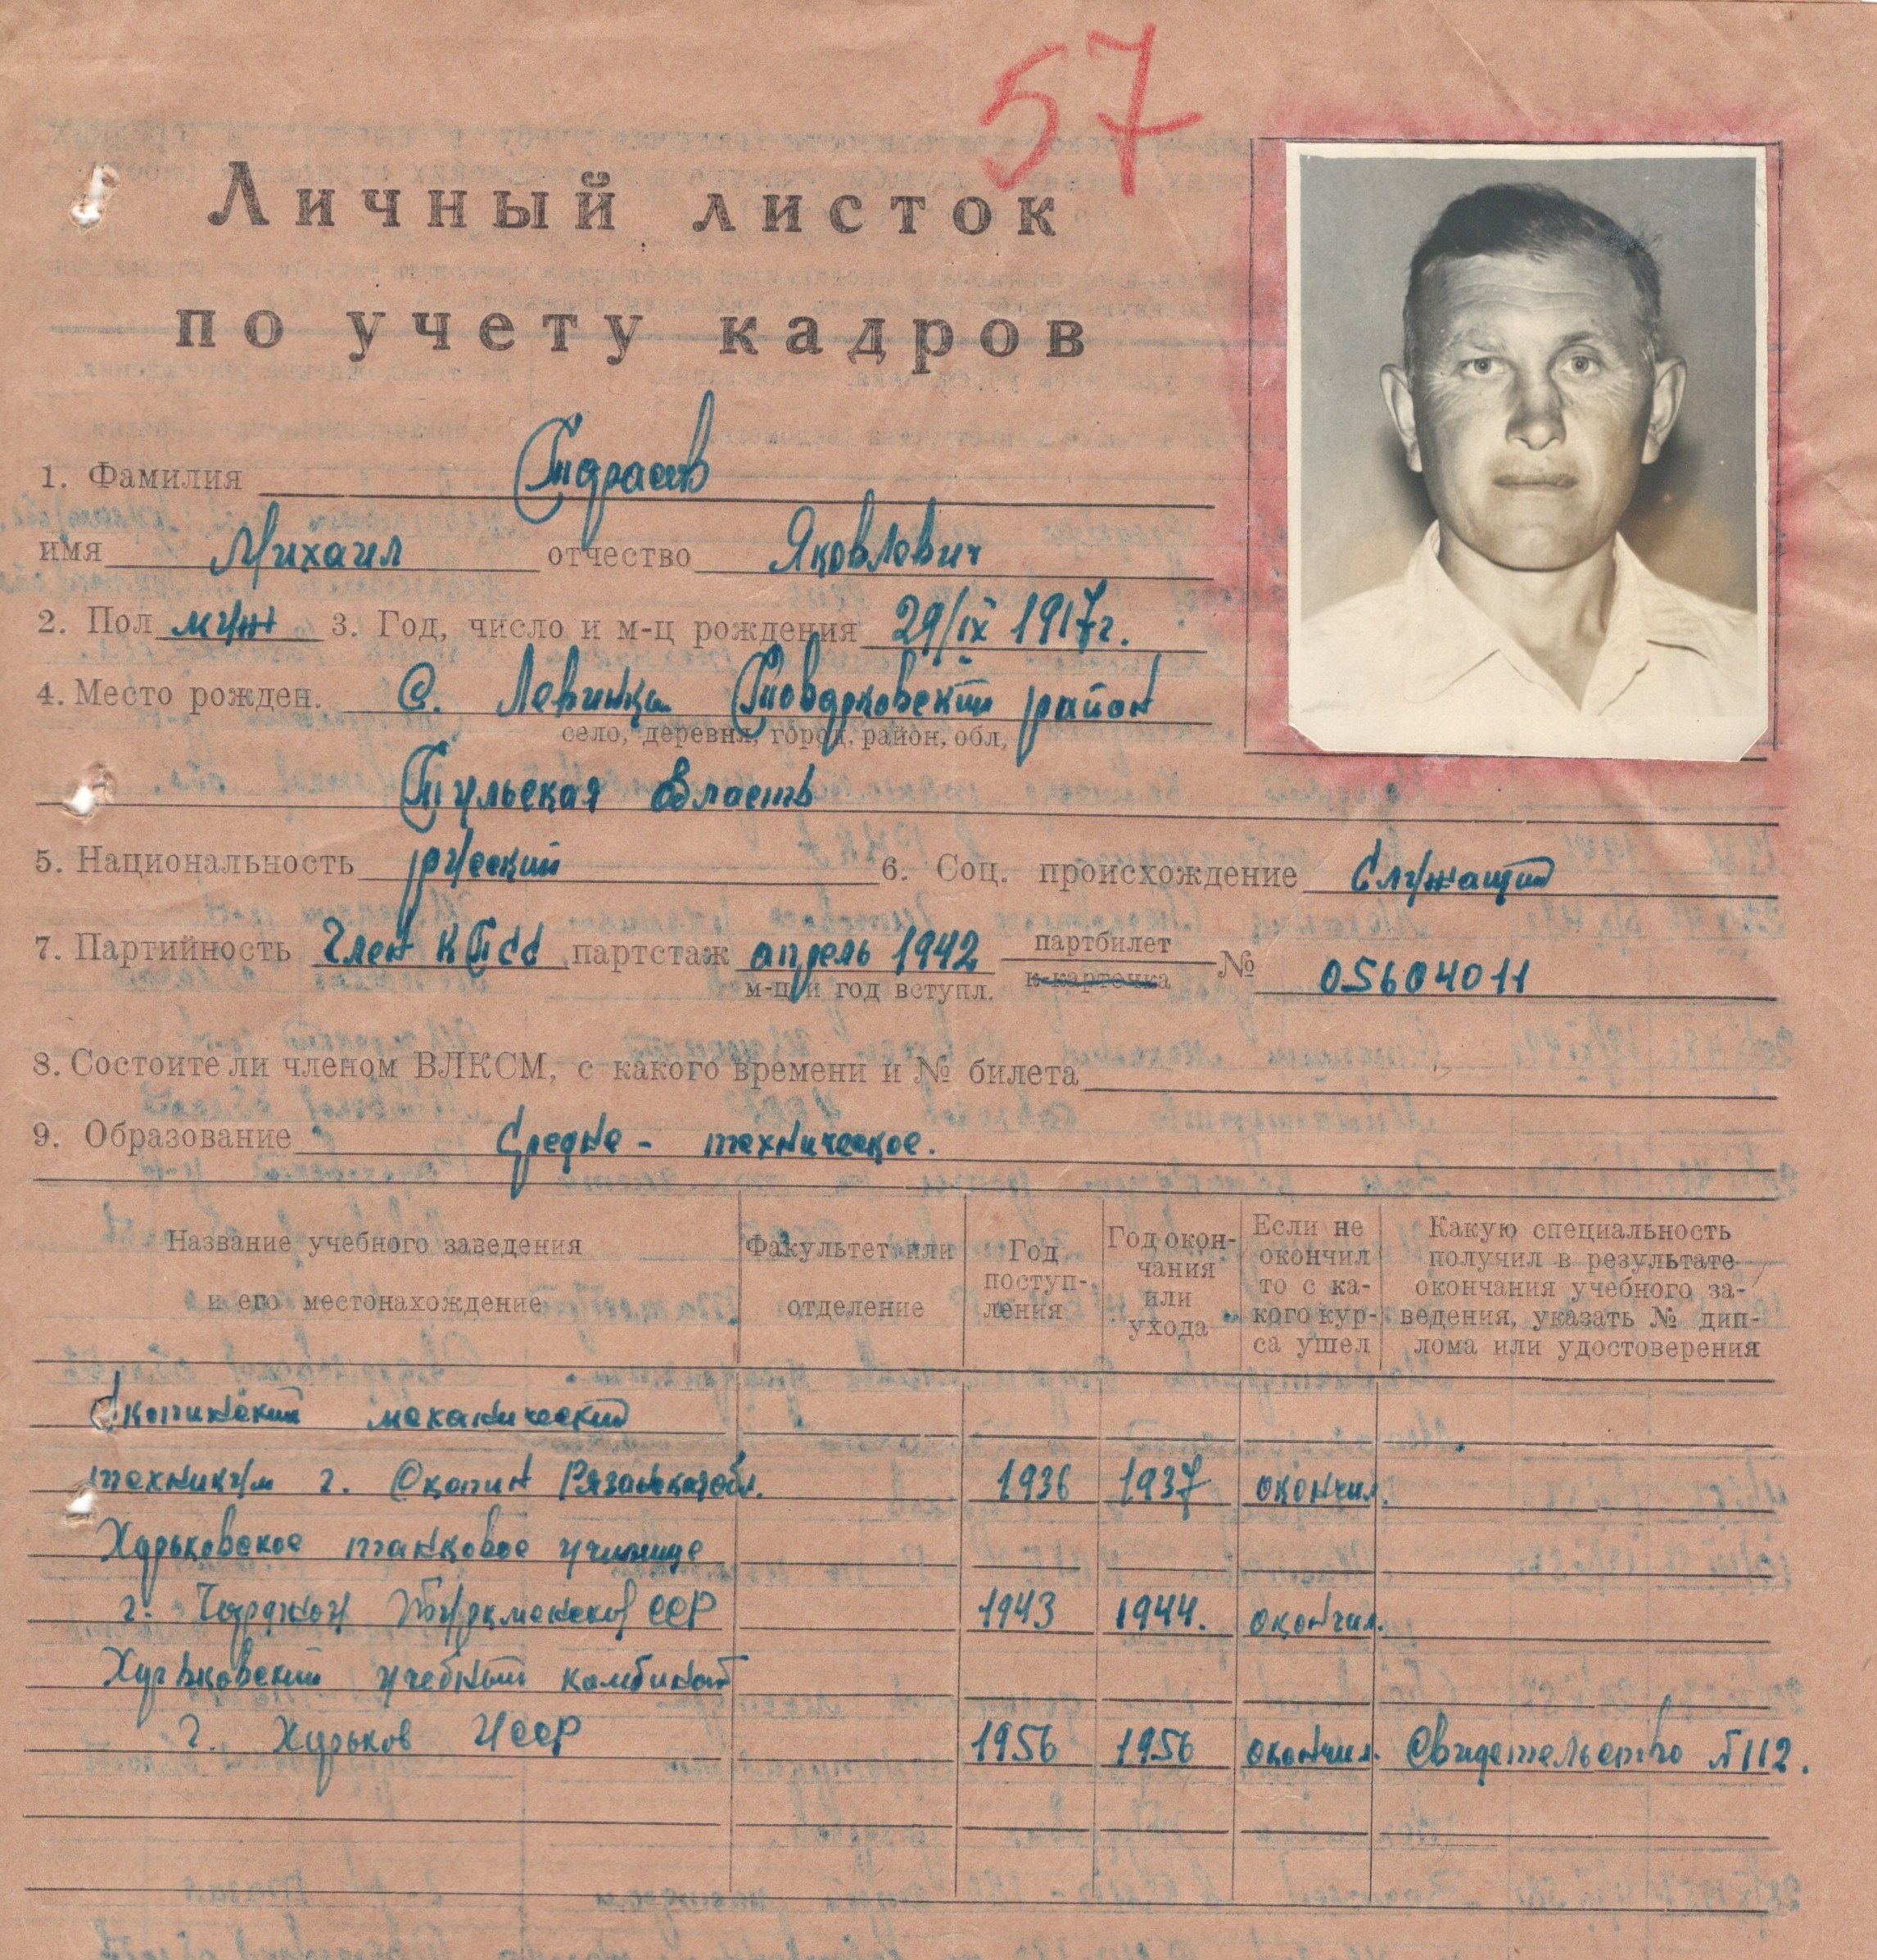 57
Личный листок
по учету кадров
1. Фамилия Тарасов
имя Михаил отчество Яковлевич
2. Пол муж 3. Год, число и м-ц рождения 29/IX 1917г.
4. Место рожден. с. Левинка Товарковский район
село, деревня, город, район, обл,
Тульская область
5. Национальность русский 6. Соц. происхождение Служащий
7. Партийность Член КПСС партстаж апрель 1942 партбилет № 05604011
м-ц и год вступл. к-карточка
8. Состоите ли членом ВЛКСМ, с какого времени и № билета
9. Образование Средне - техническое.
Название учебного заведения и его местонахождение
Факультет или отделение
Год поступ-
ления
Год окон-
чания
или
ухода
Если не
окончил
то с ка-
кого кур-
са ушел
Какую специальность
получил в результате
окончания учебного за-
ведения, указать № дип-
лома или удостоверения
Скопинский механический
техникум г. Скопин Рязанская обл. 1936 1937 окончил.
Харьковское танковое училище
г. Чарджоу Туркменской ССР 1943 1944. окончил.
Харьковский учебный комбинат
г. Харьков УССР 1956 1956 окончил. Свидетельство №112.